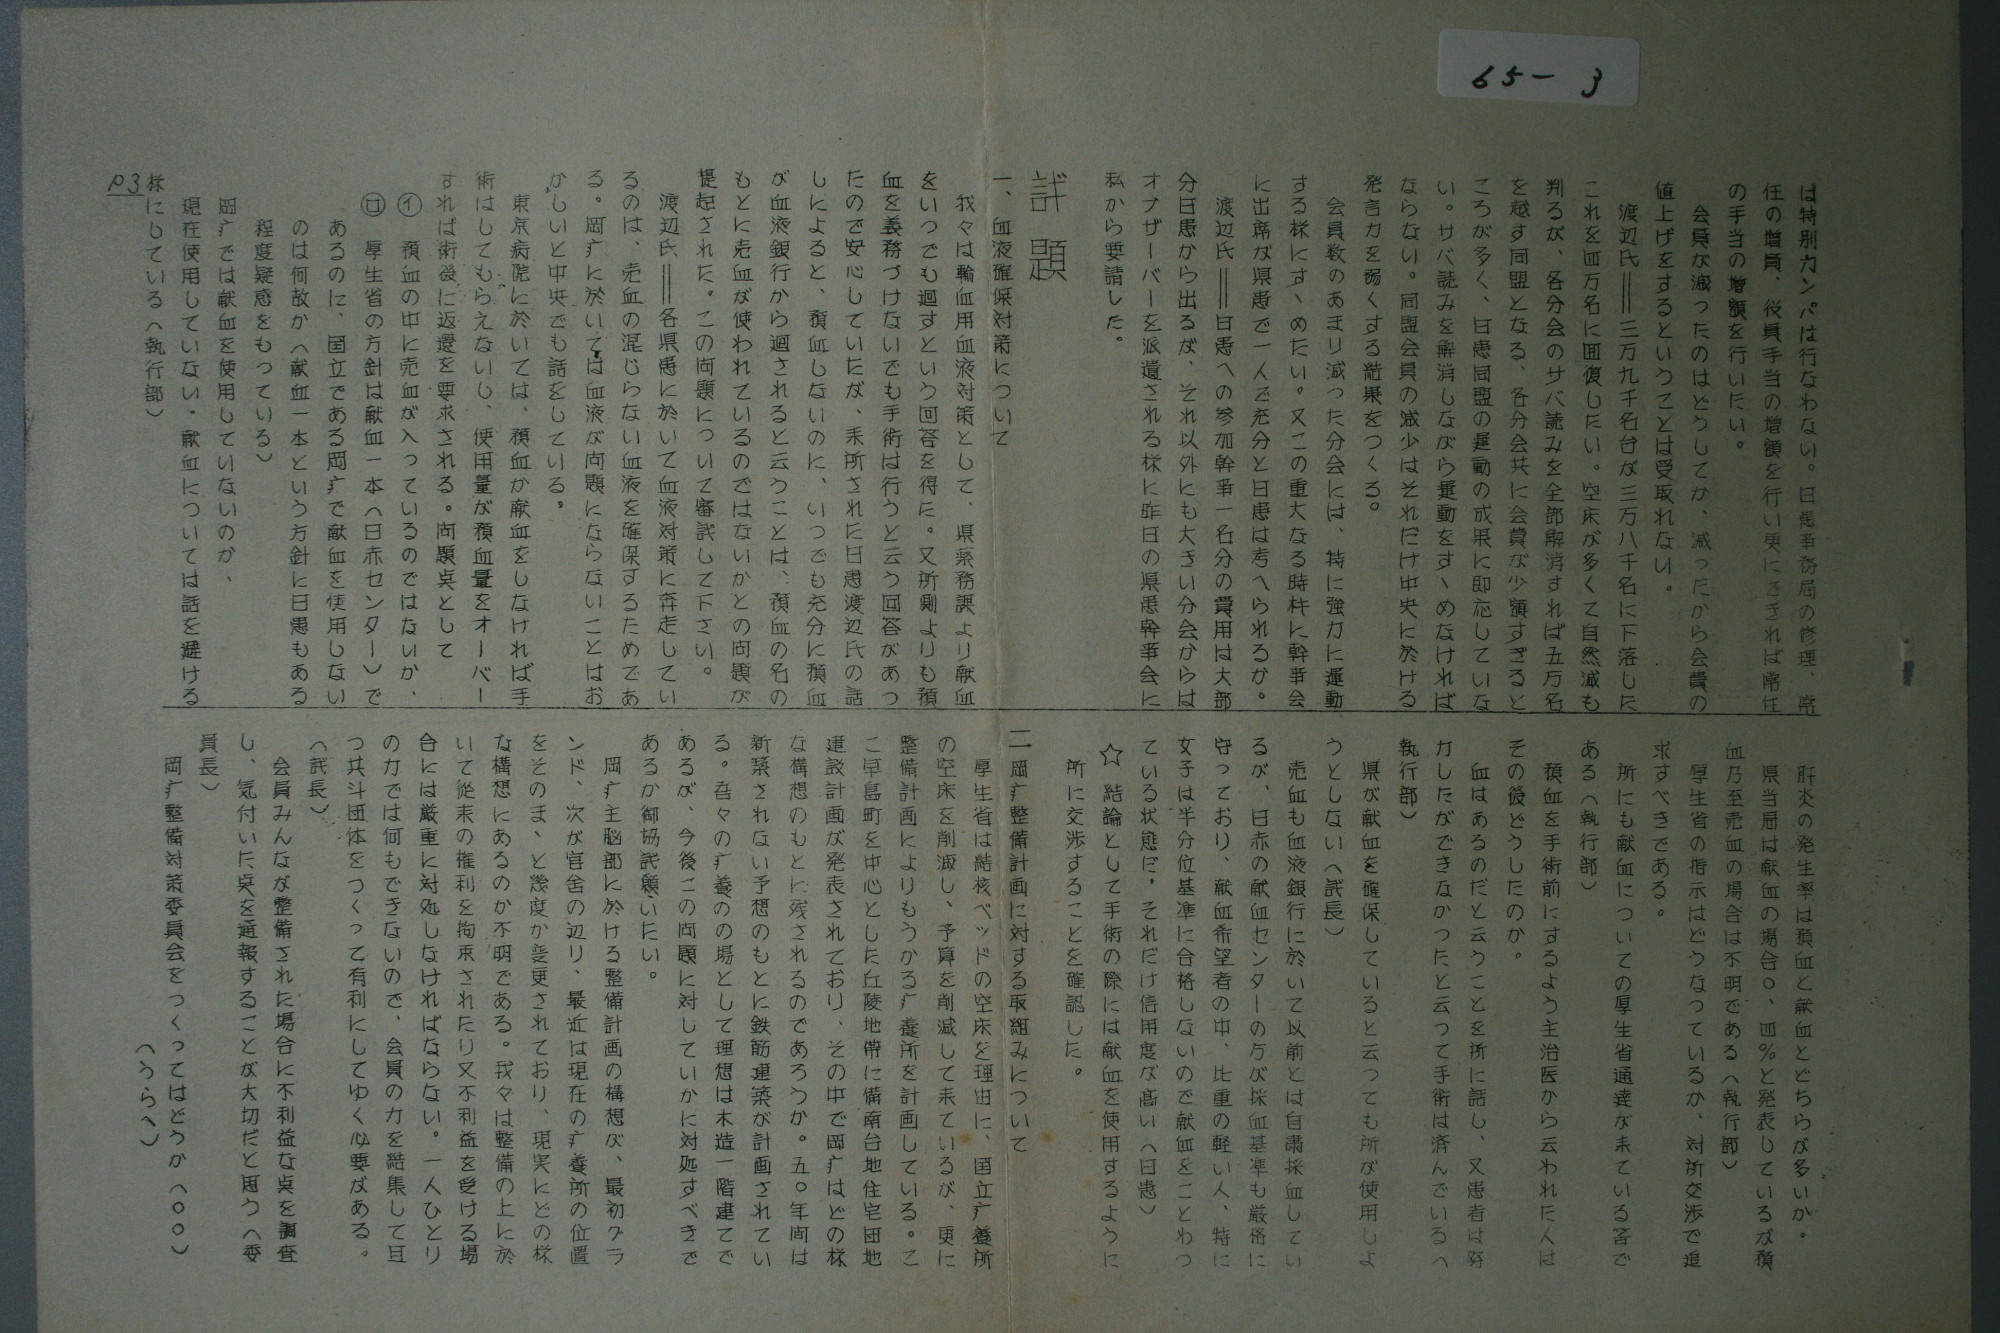 65-3
は特別カンパは行なわない。日患事務局の修理、常
任の増員、役員手当の増額を行い更にできれば常任
の手当の増額を行いたい。
会員が減ったのはどうしてか、減ったから会費の
値上げをするということは受取れない。
渡辺氏‖三万九千名台が三万八千名に下落した
これを四万名に回復したい。空床が多くて自然減も
判るが、各分会のサバ読みを全部解消すれば五万名
を越す同盟となる、各分会共に会賞が少額すぎると
ころが多く、日患同盟の運動の成果に即応していな
い。サバ読みを解消しながら運動をすゝめなければ
ならない。同盟会員の減少はそれだけ中央に於ける
発言力を弱くする結果をつくる。
会員数のあまり減った分会には、特に強力に運動
する様にすゝめたい。又この重大なる時杵に幹事会
に出席が県患で一人で充分と日患は考へられるか。
渡辺氏‖日患への参加幹事一名分の費用は大部
分日患から出るが、それ以外にも大きい分会からは
オブザーバーを派遣される様に昨日の県患幹事会に
私から要請した。
討題
一、血液確保対策について
我々は輸血用血液対策として、県薬務課より献血
をいつでも廻すという回答を得た。又所側よりも預
血を義務づけないでも手術は行うと云う回答があっ
たので安心していたが、来所された日患渡辺氏の話
しによると、預血しないのに、いつでも充分に預血
が血液銀行から廻されると云うことは、預血の名の
もとに売血が使われているのではないかとの問題が
提起された。この問題について審討して下さい。
渡辺氏‖各県患に於いて血液対策に奔走してい
るのは、売血の混じらない血液を確保するためであ
る。岡疒に於いては血液が問題にならないことはお
かしいと中央でも話をしている。
東京病院に於いては、預血か献血をしなければ手
術はしてもらえないし、使用量が預血量をオーバー
すれば術後に返還を要求される。問題点として
㋑ 預血の中に売血が入っているのではないか、
㋺ 厚生省の方針は献血一本(日赤センター)で
あるのに、国立である岡疒で献血を使用しない
のは何故か(献血一本という方針に日患もある
程度疑惑をもっている)
岡疒では献血を使用していないのか、
現在使用していない・献血については話を避ける
様にしている(執行部)
P3
肝炎の発生率は預血と献血とどちらが多いか。
県当局は献血の場合〇、四%と発表しているが預
血乃至売血の場合は不明である(執行部)
厚生省の指示はどうなっているか、対所交渉で追
求すべきである。
所にも献血についての厚生省通達が来ている筈で
ある(執行部)
預血を手術前にするよう主治医から云われた人は
その後どうしたのか。
血はあるのだと云うことを所に話し、又患者は努
力したができなかったと云って手術は済んでいる(
執行部)
県が献血を確保していると云っても所が使用しよ
うとしない(討長)
売血も血液銀行に於いて以前とは自粛採血してい
るが、日赤の献血センターの方が採血基準も厳格に
守っており、献血希望者の中、比重の軽い人、特に
女子は半分位基準に合格しないので献血をことわっ
ている状態だ,それだけ信用度が高い(日患)
☆ 結論として手術の際には献血を使用するように
所に交渉することを確認した。
二 岡疒整備計画に対する取組みについて
厚生省は結核ベッドの空床を理由に、国立疒養所
の空床を削減し、予算を削減して来ているが、更に
整備計画によりもうかる疒養所を計画している。こ
こ早島町を中心とした丘陵地帯に備南台地住宅団地
建設計画が発表されており、その中で岡疒はどの様
な構想のもとに残されるのであろうか。五〇年間は
新築されない予想のもとに鉄筋建築が計画されてい
る。吾々の疒養のの場として理想は木造一階建てで
あるが、今後この問題に対していかに対処すべきで
あるか御協討願いたい。
岡疒主脳部に於ける整備計画の構想が、最初グラ
ンド、次が官舎の辺り、最近は現在の疒養所の位置
をそのまゝと幾度か変更されており、現実にどの様
な構想にあるのか不明である。我々は整備の上に於
いて従来の権利を拘束されたり又不利益を受ける場
合には厳重に対処しなければならない。一人ひとり
の力では何もできないので、会員の力を結集して且
つ共斗団体をつくって有利にしてゆく必要がある。
(討長)
会員みんなが整備された場合に不利益な点を調査
し、気付いた点を通報することが大切だと思う(委
員長)
岡疒整備対策委員会をつくってはどうか(〇〇)
(うらへ)